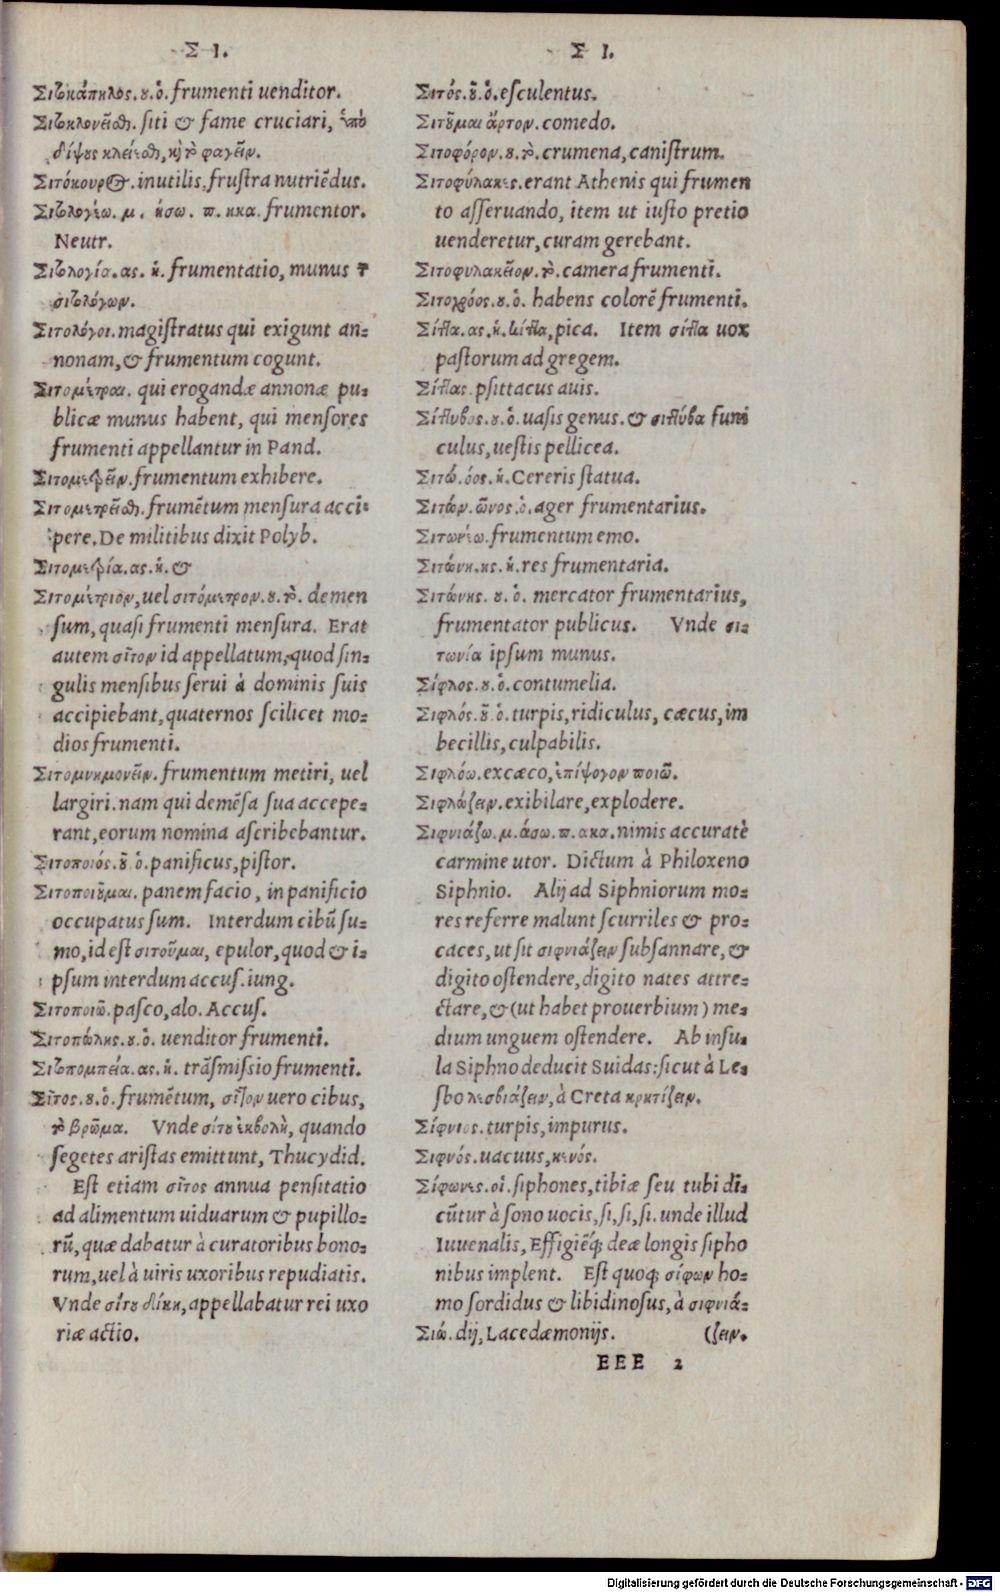 Σ Ι.
Σιτοκάπηλος.ου.ὁ.frumenti uenditor.
Σιτοκλονεῖσθαι.siti & fame cruciari, ὑπὸ
δίψους κλείεσθαι,καὶ τὸ φαγεῖν.
Σιτόκουρος.inutilis,frustra nutriẽdus.
Σιτολογέω.μ. ήσω. π. ηκα.frumentor.
Neutr.
Σιτολογία.ας.ἡ.frumentatio, munus τ
σιτολόγων.
Σιτολόγοι.magistratus qui exigunt an=
nonam,& frumentum cogunt.
Σιτομέτραι. qui erogandæ annonæ pu=
blicæ munus habent, qui mensores
frumenti appellantur in Pand.
Σιτομετρεῖν.frumentum exhibere.
Σιτομετρεῖσθαι.frumẽtum mensura acci=
pere.De militibus dixit Polyb.
Σιτομετρία.ας.ἡ.&
Σιτομέτριον,uel σιτόμετρον.ου.τὸ. demen
sum,quasi frumenti mensura. Erat
autem σῖτον id appellatum,quod sin=
gulis mensibus serui à dominis suis
accipiebant,quaternos scilicet mo=
dios frumenti.
Σιτομνημονεῖν.frumentum metiri, uel
largiri.nam qui demẽsa sua accepe=
rant,eorum nomina ascribebantur.
Σιτοποιός.οῦ ὁ.panificus,pistor.
Σιτοποιοῦμαι.panem facio, in panificio
occupatus sum. Interdum cibũ su=
mo,id est σιτοῦμαι, epulor,quod & i=
psum interdum accus.iung.
Σιτοποιῶ.pasco,alo.Accus.
Σιτοπώλης.ου.ὁ. uenditor frumenti.
Σιτοπομπεία.ας.ἡ. trãsmissio frumenti.
Σῖτος.ου.ὁ.frumẽtum, σῖτον uero cibus,
τὸ βρῶμα. Vnde σίτου ἐκβολὴ, quando
segetes aristas emittunt, Thucydid.
Est etiam σῖτος annua pensitatio
ad alimentum uiduarum & pupillo=
rũ,quæ dabatur à curatoribus bono=
rum,uel à uiris uxoribus repudiatis.
Vnde σίτου δίκη,appellabatur rei uxo
riæ actio.
Σ Ι.
Σιτός.οῦ.ὁ.esculentus.
Σιτοῦμαι ἄρτον.comedo.
Σιτοφόρον.ου.τὸ.crumena,canistrum.
Σιτοφύλακες.erant Athenis qui frumen
to asseruando, item ut iusto pretio
uenderetur,curam gerebant.
Σιτοφυλακεῖον.τὸ.camera frumenti.
Σιτοχρόος.ου.ὁ. habens colorẽ frumenti.
Σίττα.ας.ἡ.ψίττα,pica. Item σίττα uox
pastorum ad gregem.
Σίττας.psittacus auis.
Σίττυβος.ου.ὁ.uasis genus.& σιττύβα funi
culus,uestis pellicea.
Σιτώ.όος.ἡ.Cereris statua.
Σιτών.ῶνος.ὁ.ager frumentarius.
Σιτωνέω.frumentum emo.
Σιτώνη.ης.ἡ.res frumentaria.
Σιτώνης. ου. ὁ. mercator frumentarius,
frumentator publicus. Vnde σι=
τωνία ipsum munus.
Σίφλος.ου.ὁ.contumelia.
Σιφλός.οῦ.ὁ.turpis,ridiculus, cæcus,im
becillis,culpabilis.
Σιφλόω.excæco,ἐπίψογον ποιῶ.
Σιφλώζειν.exibilare,explodere.
Σιφνιάζω.μ.άσω.π.ακα.nimis accuratè
carmine utor. Dictum à Philoxeno
Siphnio. Alij ad Siphniorum mo=
res referre malunt scurriles & pro=
caces,ut sit σιφνιάζειν subsannare,&
digito ostendere,digito nates attre=
ctare,&(ut habet prouerbium)me=
dium unguem ostendere. Ab insu=
la Siphno deducit Suidas:sicut à Le=
sbo λεσβιάζειν,à Creta κρητίζειν.
Σίφνιος.turpis,impurus.
Σιφνός.uacuus,κενός.
Σίφωνες.οἱ.siphones,tibiæ seu tubi di=
cũtur à sono uocis,si,si,si.unde illud
Iuuenalis, Effigiẽq; deæ longis sipho
nibus implent. Est quoq; σίφων ho=
mo sordidus & libidinosus,à σιφνιά=
Σιώ.dij,Lacedæmonijs. (ζειν.
EEE 2
Digitalisierung gefördert durch die Deutsche Forschungsgemeinschaft - DFG